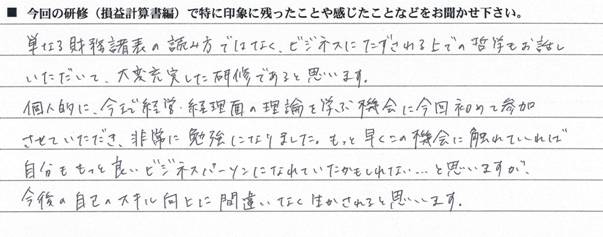 ■ 今回の研修（損益計算書編）で特に印象に残ったことや感じたことなどをお聞かせ下さい。
単なる財務諸表の読み方ではなく、ビジネスにたずされる上での哲学もお話し
いただいて、大変充実した研修であると思います。
個人的に、今まで経営・経理面の理論を学ぶ機会に今回初めて参加
させていただき、非常に勉強になりました。もっと早くこの機会に触れていれば
自分ももっと良いビジネスパーソンになれていたかもしれない…と思いますが、
今後の自己のスキル向上に間違いなく生かされると思います。